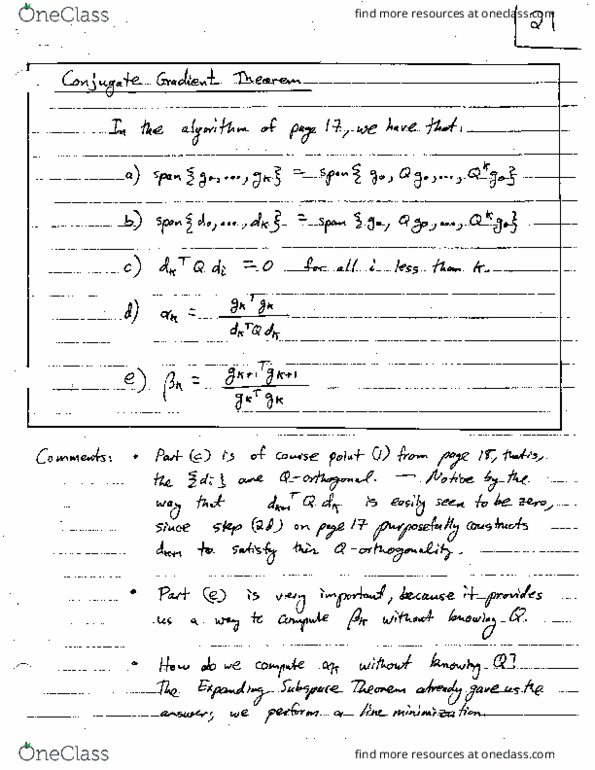 OneClass
find more resources at oneclass.com
21
Conjugate Gradient Theorem
In the algorithm of page 17, we have that:
a) span{g₀,...,gₖ} = span{g₀, Qg₀,..., Qᵏg₀}
b) span{d₀,...,dₖ} = span{g₀, Qg₀,..., Qᵏg₀}
c) dₖᵀQdᵢ = 0 for all i less than k.
d) αₖ = gₖᵀgₖ / dₖᵀQdₖ
e) βₖ = gₖ₊₁ᵀgₖ₊₁ / gₖᵀgₖ
Comments: • Part (c) is of course point (1) from page 18, that is,
the {dᵢ} are Q-orthogonal. — Notice by the
way that dₖ₊₁ᵀQdₖ is easily seen to be zero,
since step (2d) on page 17 purposefully constructs
dₖ₊₁ to satisfy this Q-orthogonality.
• Part (e) is very important, because it provides
us a way to compute βₖ without knowing Q.
• How do we compute αₖ without knowing Q?
The Expanding Subspace Theorem already gave us the
answer; we perform a line minimization.
OneClass
find more resources at oneclass.com